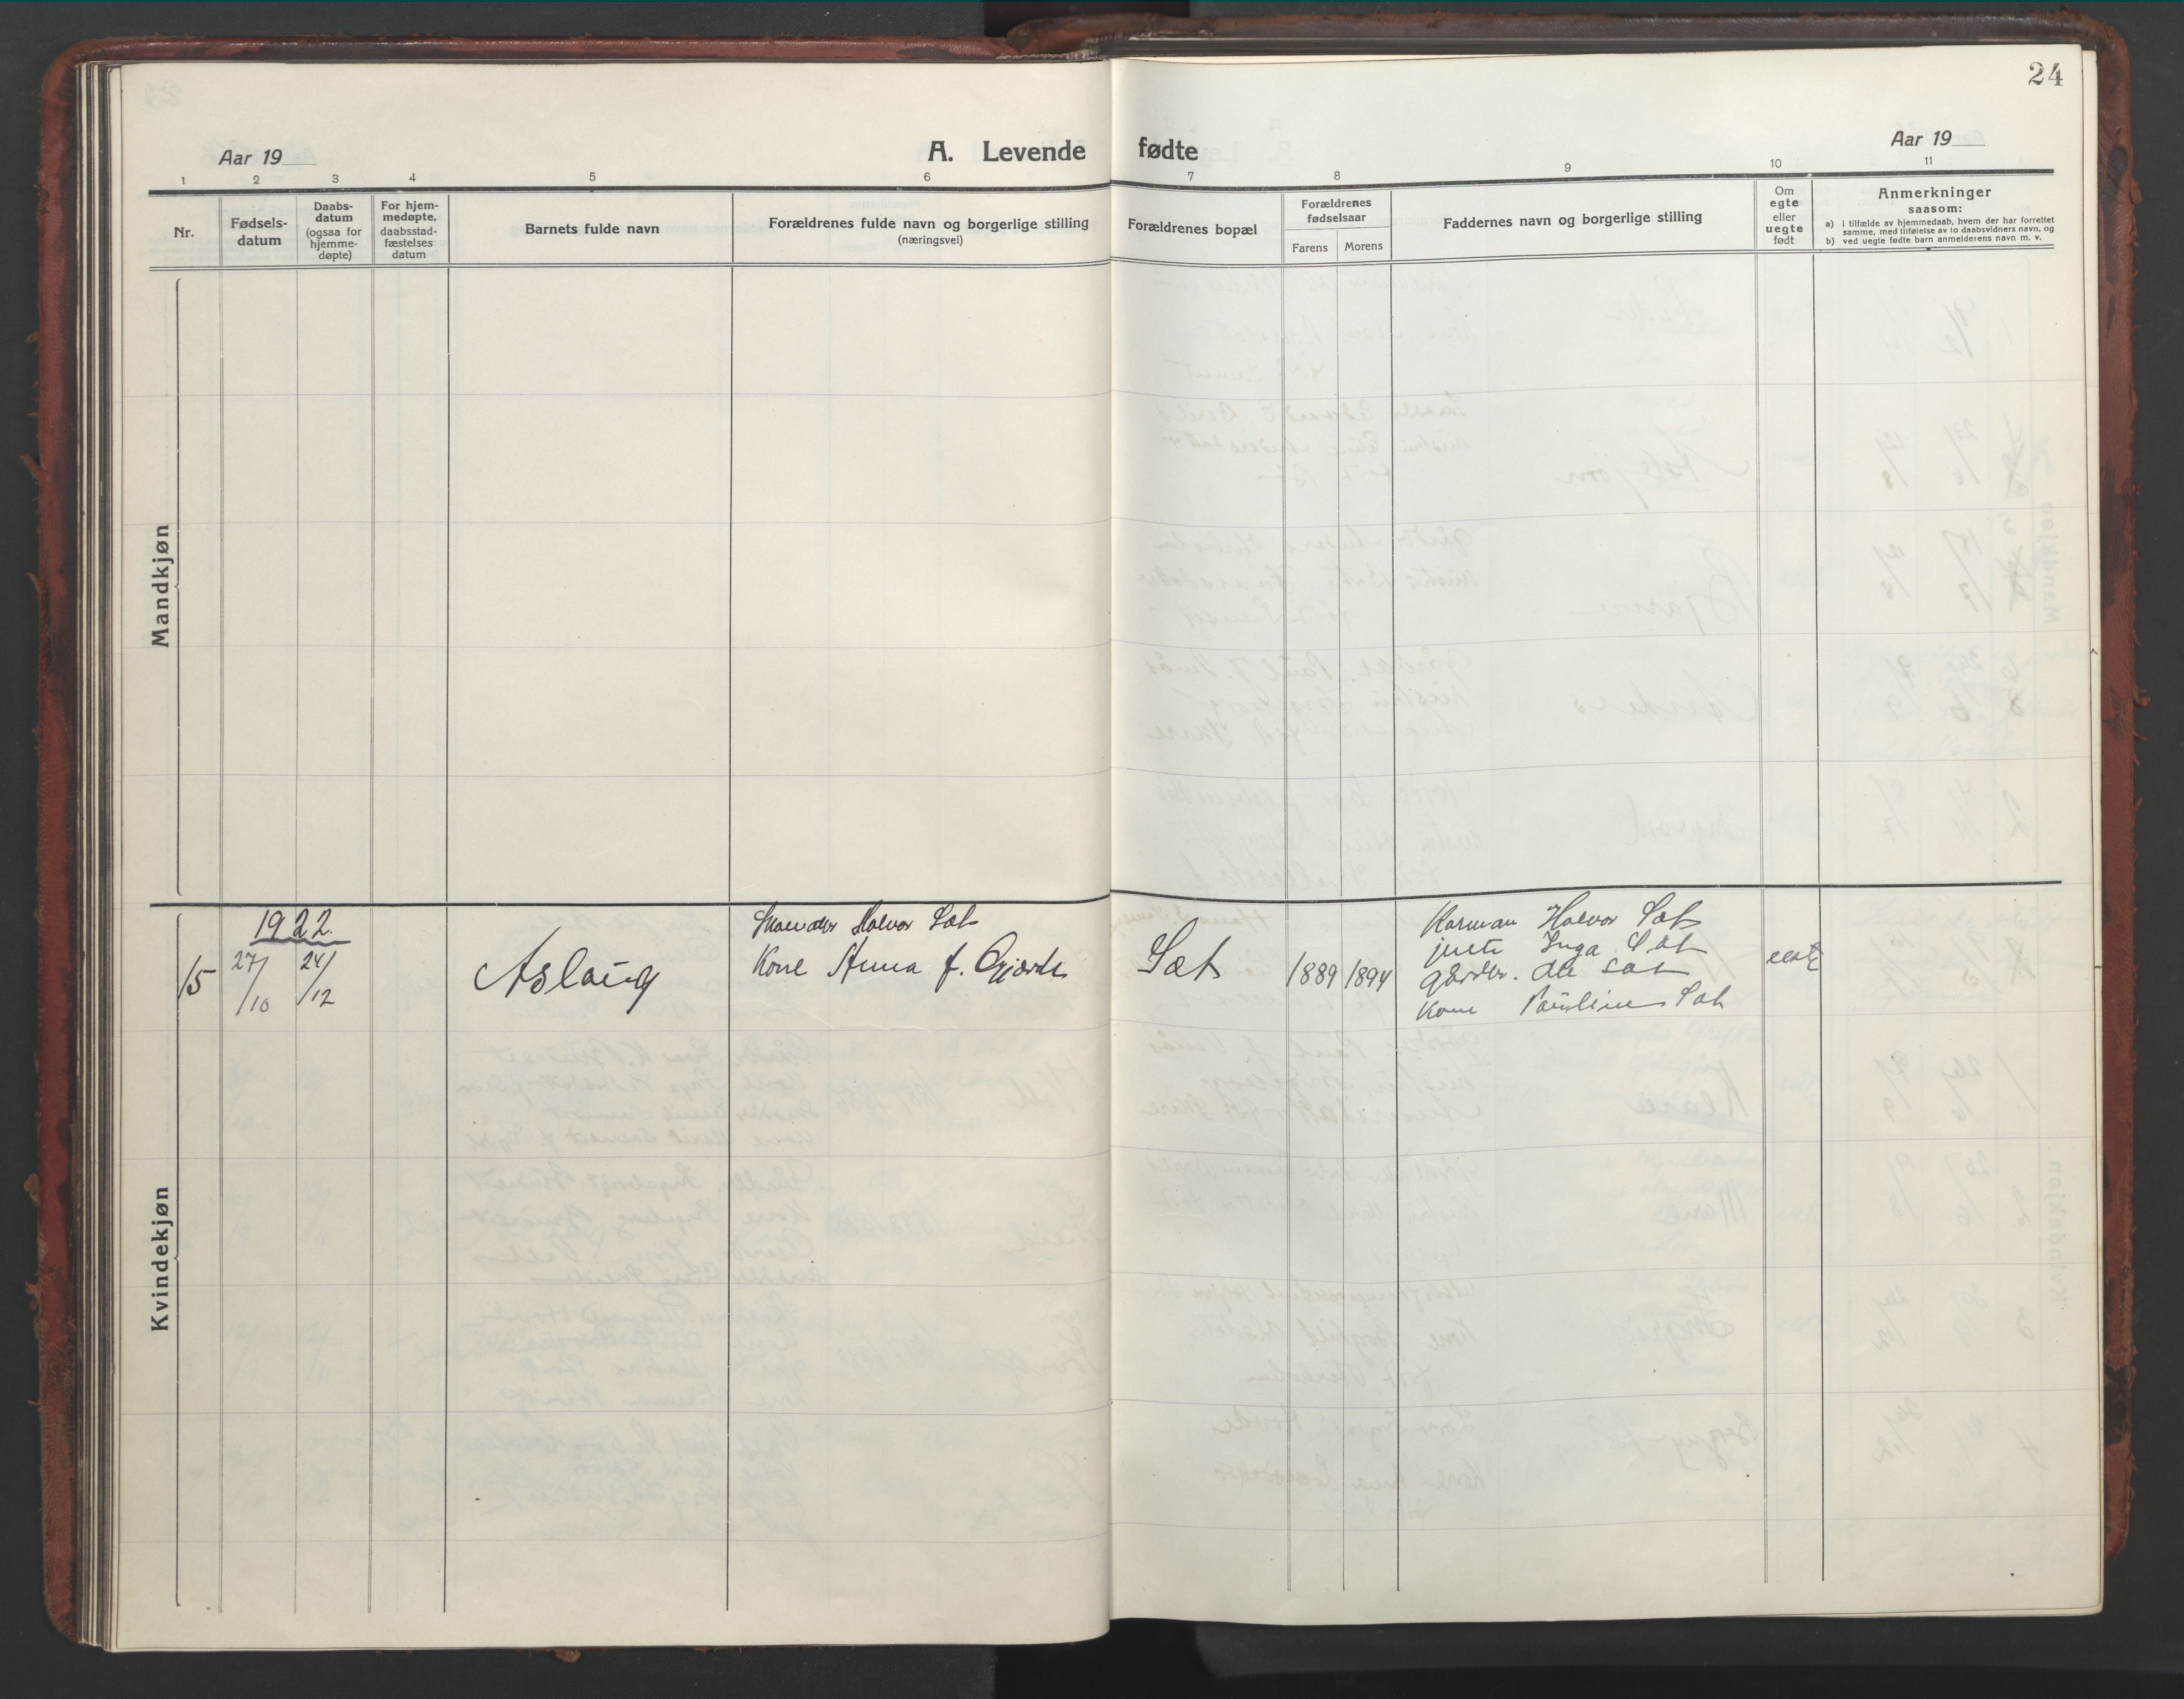 24
Aar 19
A. Levende fødte
Aar 19
1 2 3 4 5 6 7 8 9 10 11
Nr.
Fødsels-
datum
Daabs-
datum
(ogsaa for
hjemme-
døpte)
For hjem-
medøpte,
daabsstad-
fæstelses
datum
Barnets fulde navn
Forældrenes fulde navn og borgerlige stilling
(næringsvei)
Forældrenes bopæl
Forældrenes
fødselsaar
Farens Morens
Faddernes navn og borgerlige stilling
Om
egte
eller
uegte
født
Anmerkninger
saasom:
a) i tilfælde av hjemmedaab, hvem der har forrettet
samme, med tilføielse av to daabsvidners navn, og
b) ved uegte fødte barn anmelderens navn m. v.
Mandkjøn
Kvindekjøn
1922.
15
27/10
24/12
Aslaug
Halvor Sæt
Kone Anna f. Gjærde
Sæt
1889 1894
Karman Halvor Sæt
Inga Sæt
Gårdbr. Ole Sæt
Kone Pauline Sæt